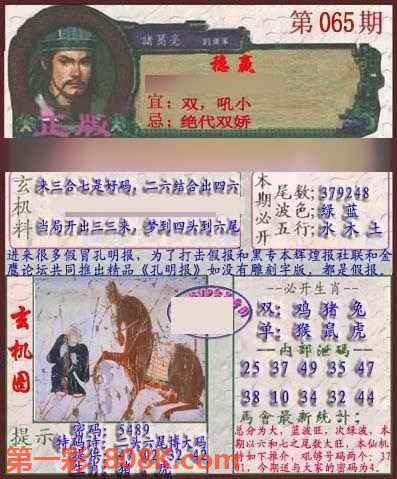 第065期
諸葛亮
稳赢
宜：双，吼小
忌：绝代双娇
正版
玄机料
来三合七是好码，二六结合出四六
当局开出三三来，梦到四头到六尾
本期必开
尾数;379248
波色;绿 蓝
五行;水木土
进来很多假冒孔明报，为了打击假报和黑专本辉煌报社联和金
鹰论坛共同推出精品《孔明报》如没有雕刻字版，都是假报。
玄机图
--必开生肖--
双：鸡 猪 兔
单：猴 鼠 虎
--内部泄码--
25 37 49 35 47
38 10 34 32 44
马會最新统计：
总分为大，蓝波旺，次绿波，本
期以六和七之尾数大旺，本仙机
特如下推介，吼够号码两个：37
41，今期道与大家的密码为4.
提示
密码：5489
特码诗：二头六尾博大码
32 42
第一彩 808K.com